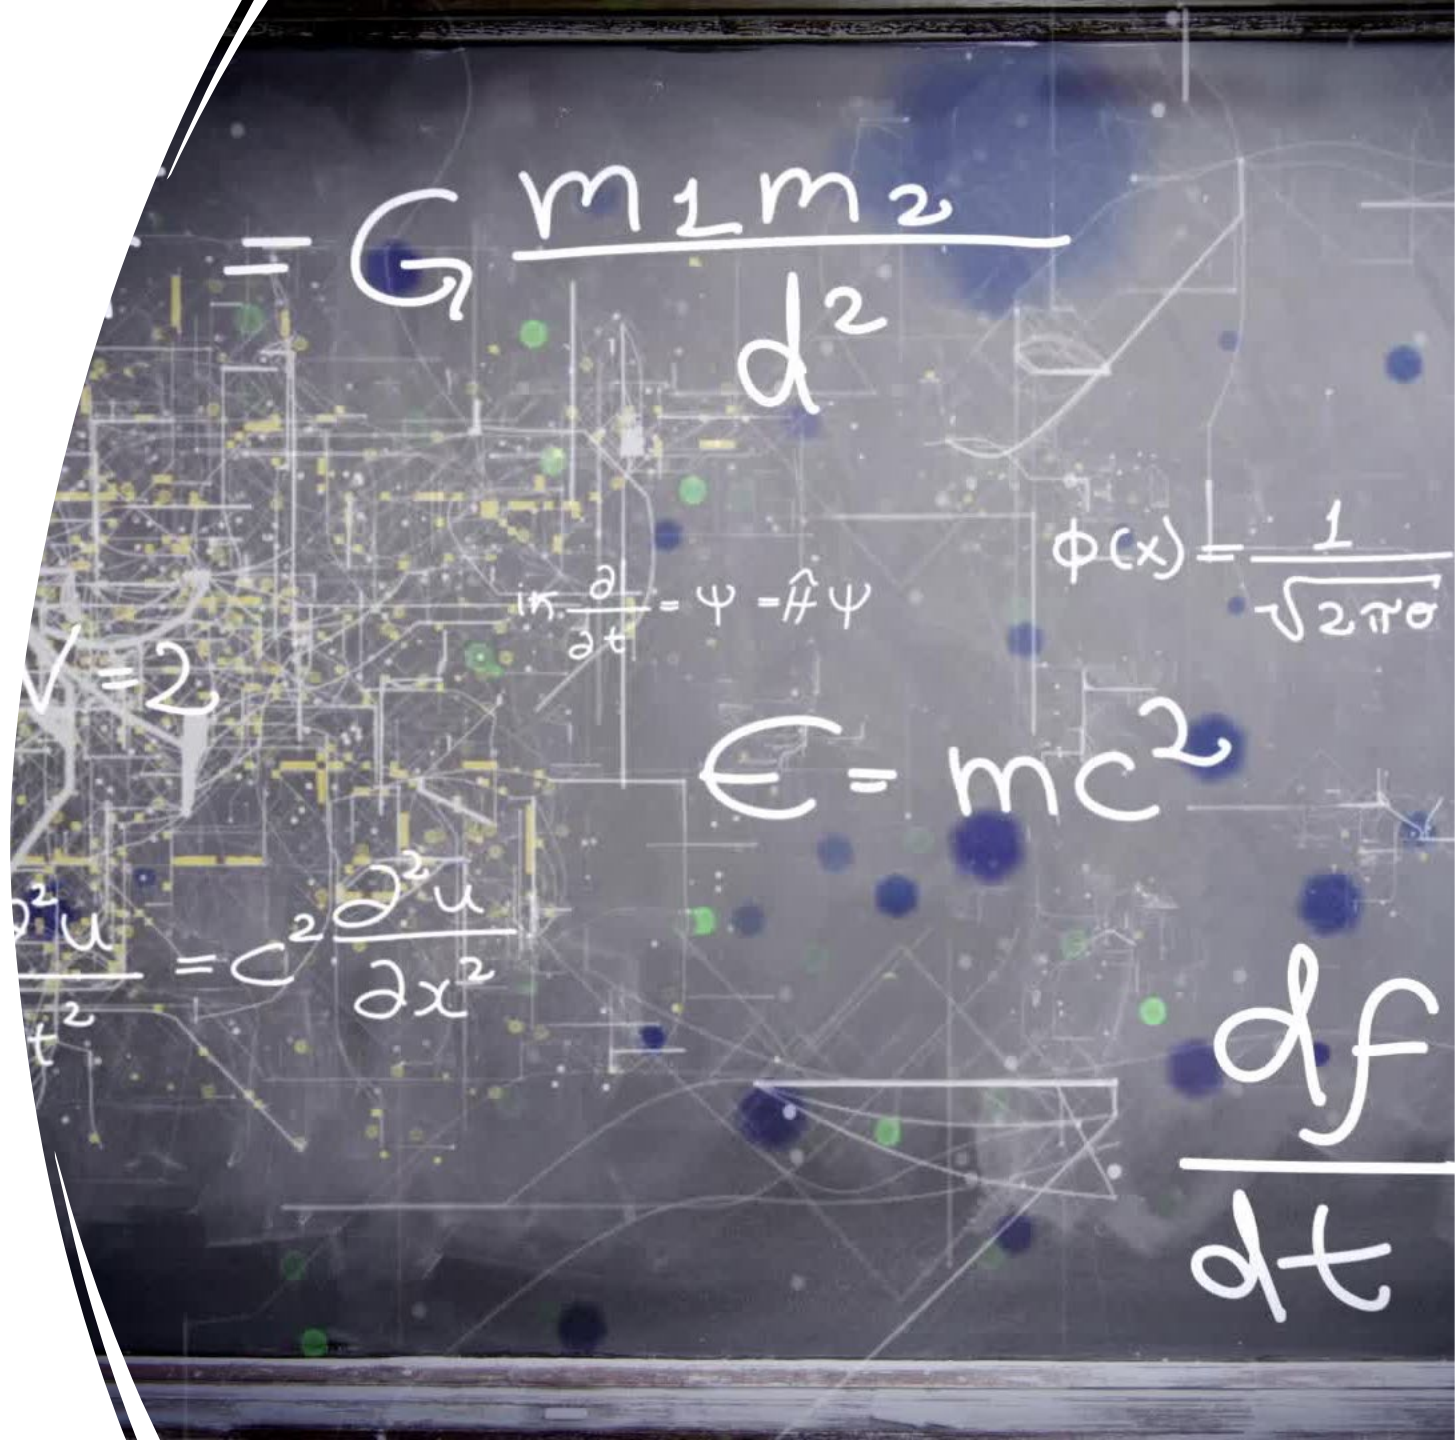 = G m1m2/d²
φ(x) = 1/√2πσ
iℏ ∂/∂t = Ψ = ĤΨ
V = 2
E = mc²
∂²u/t² = c² ∂²u/∂x²
df/dt